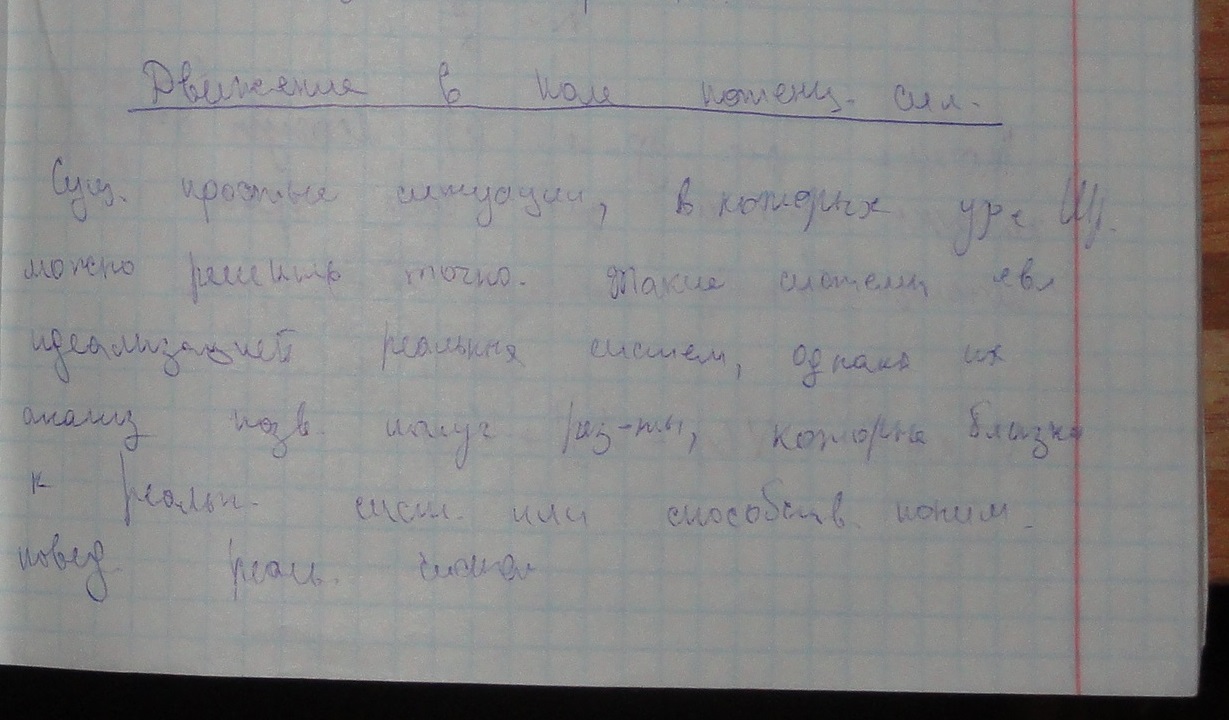 Движение в поле потенц. сил.
Сущ. простые ситуации, в которых ур-е Ш.
можно решить точно. Такие системы явл
идеализацией реальных систем, однако их
анализ позв. получ рез-ты, которые близки
к реальн. сист. или способств. поним.
повед. реаль. систем